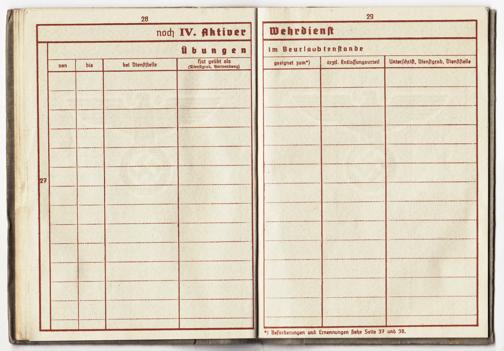 28
noch IV. Aktiver
Übungen
von bis bei Dienststelle Hat geübt als
(Dienstgrad, Verwendung)
27
29
Wehrdienst
im Beurlaubtenstande
geeignet zum*) ärztl. Entlassungsurteil Unterschrift, Dienstgrad, Dienststelle
*) Beförderungen und Ernennungen siehe Seite 37 und 38.